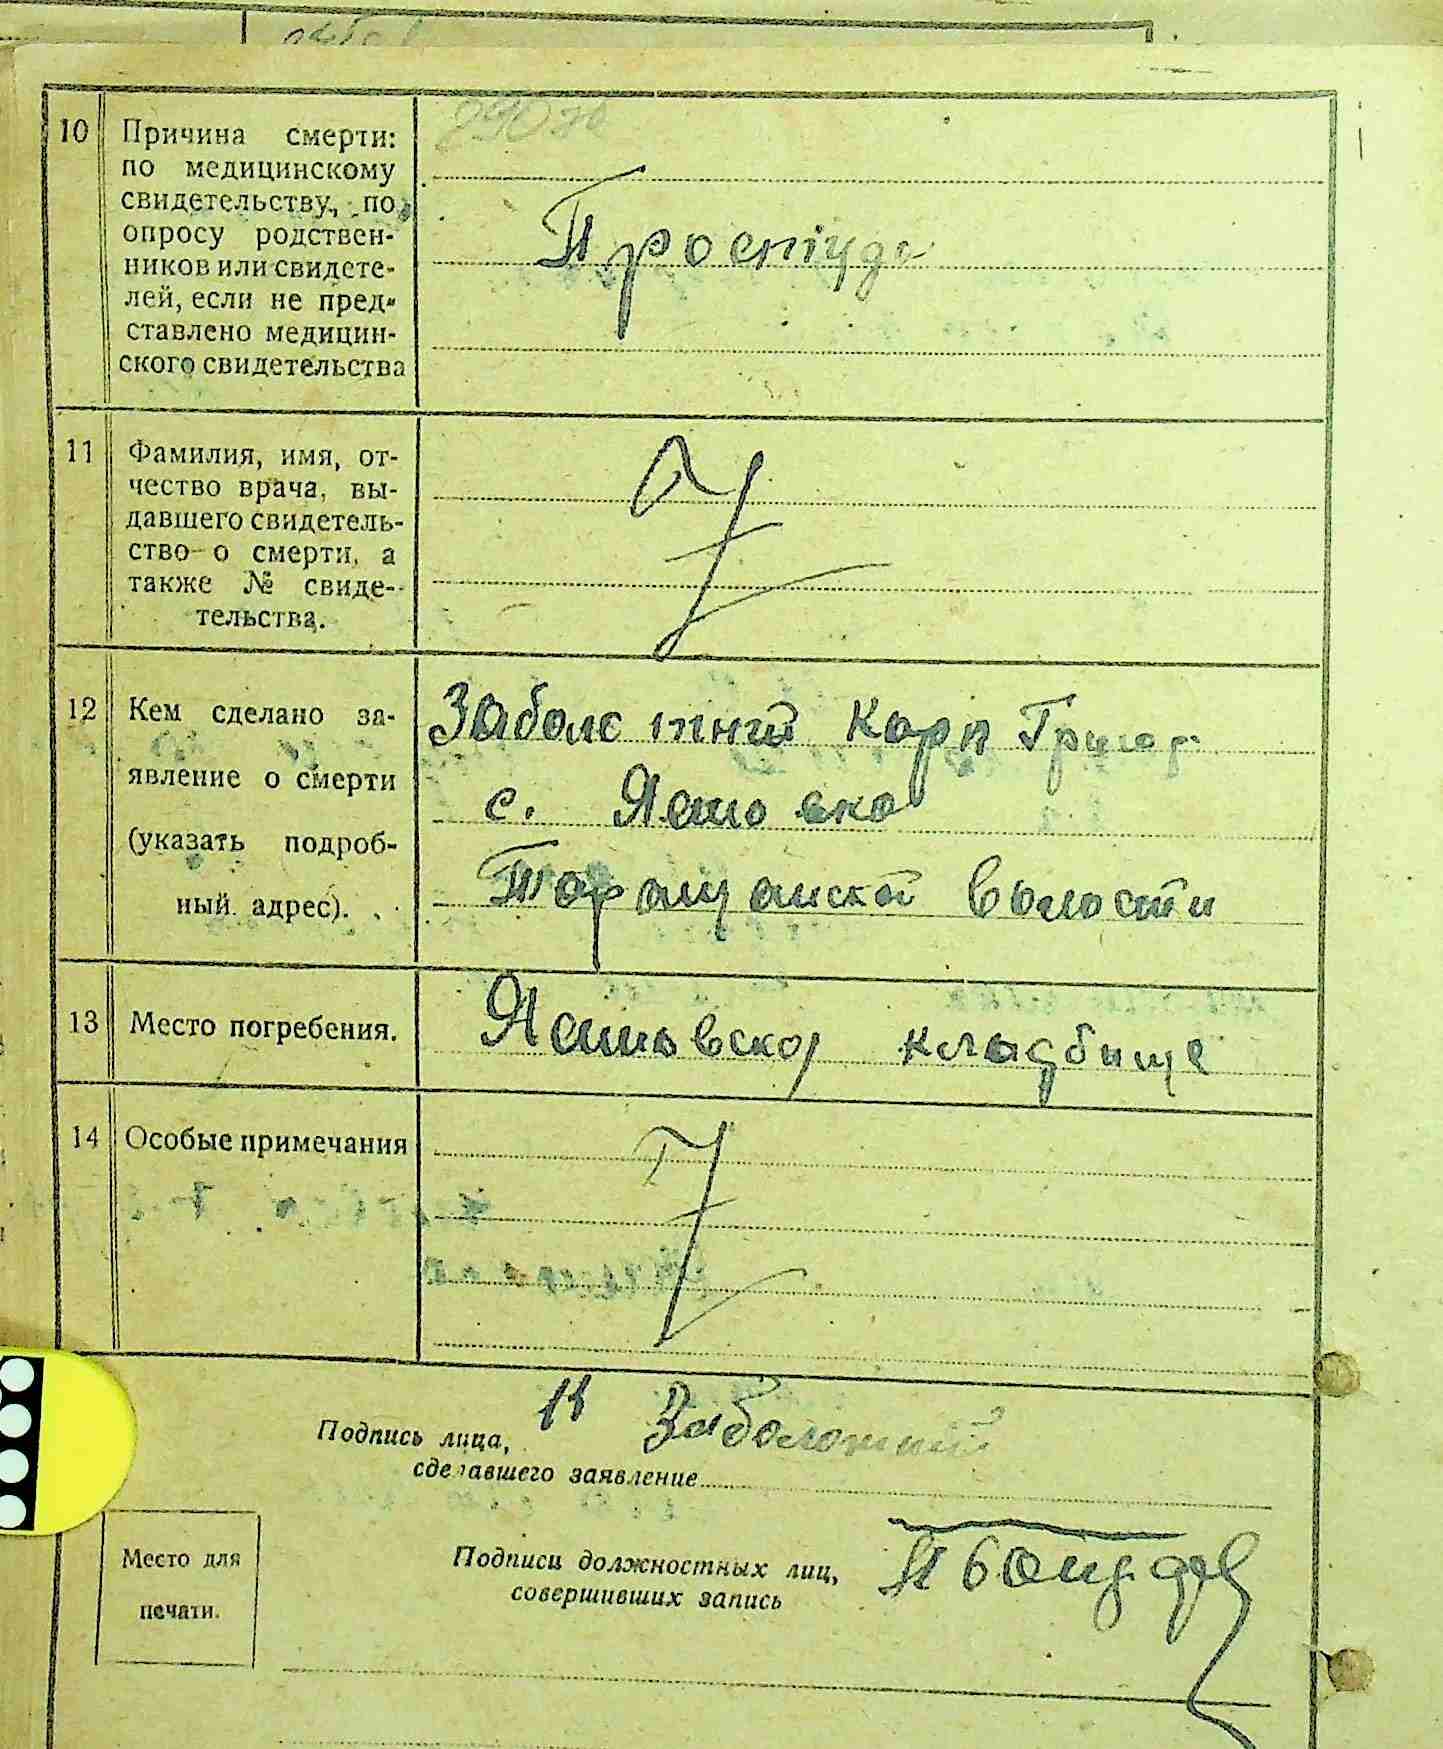 10 Причина смерти:
по медицинскому
свидетельству, по
опросу родствен-
ников или свидете-
лей, если не пред-
ставлено медицин-
ского свидетельства
Простуда
11 Фамилия, имя, от-
чество врача, вы-
давшего свидетель-
ство о смерти, а
также № свиде-
тельства.
12 Кем сделано за-
явление о смерти
(указать подроб-
ный адрес).
Заболотний Карп Григор
с.
волости
13 Место погребения.
кладбище
14 Особые примечания
Подпись лица,
сделавшего заявление
К Заболотний
Подписи должностных лиц,
совершивших запись
Место для
печати.